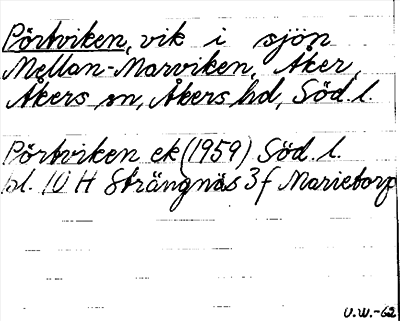 Pörtviken, vik i sjön
Mellan-Marviken, Åker,
Åkers sn, Åkers hd, Söd. l.
Pörtviken ek (1959) Söd. l.
bl. 10 H Strängnäs 3 f Marietorp
U.W.-62